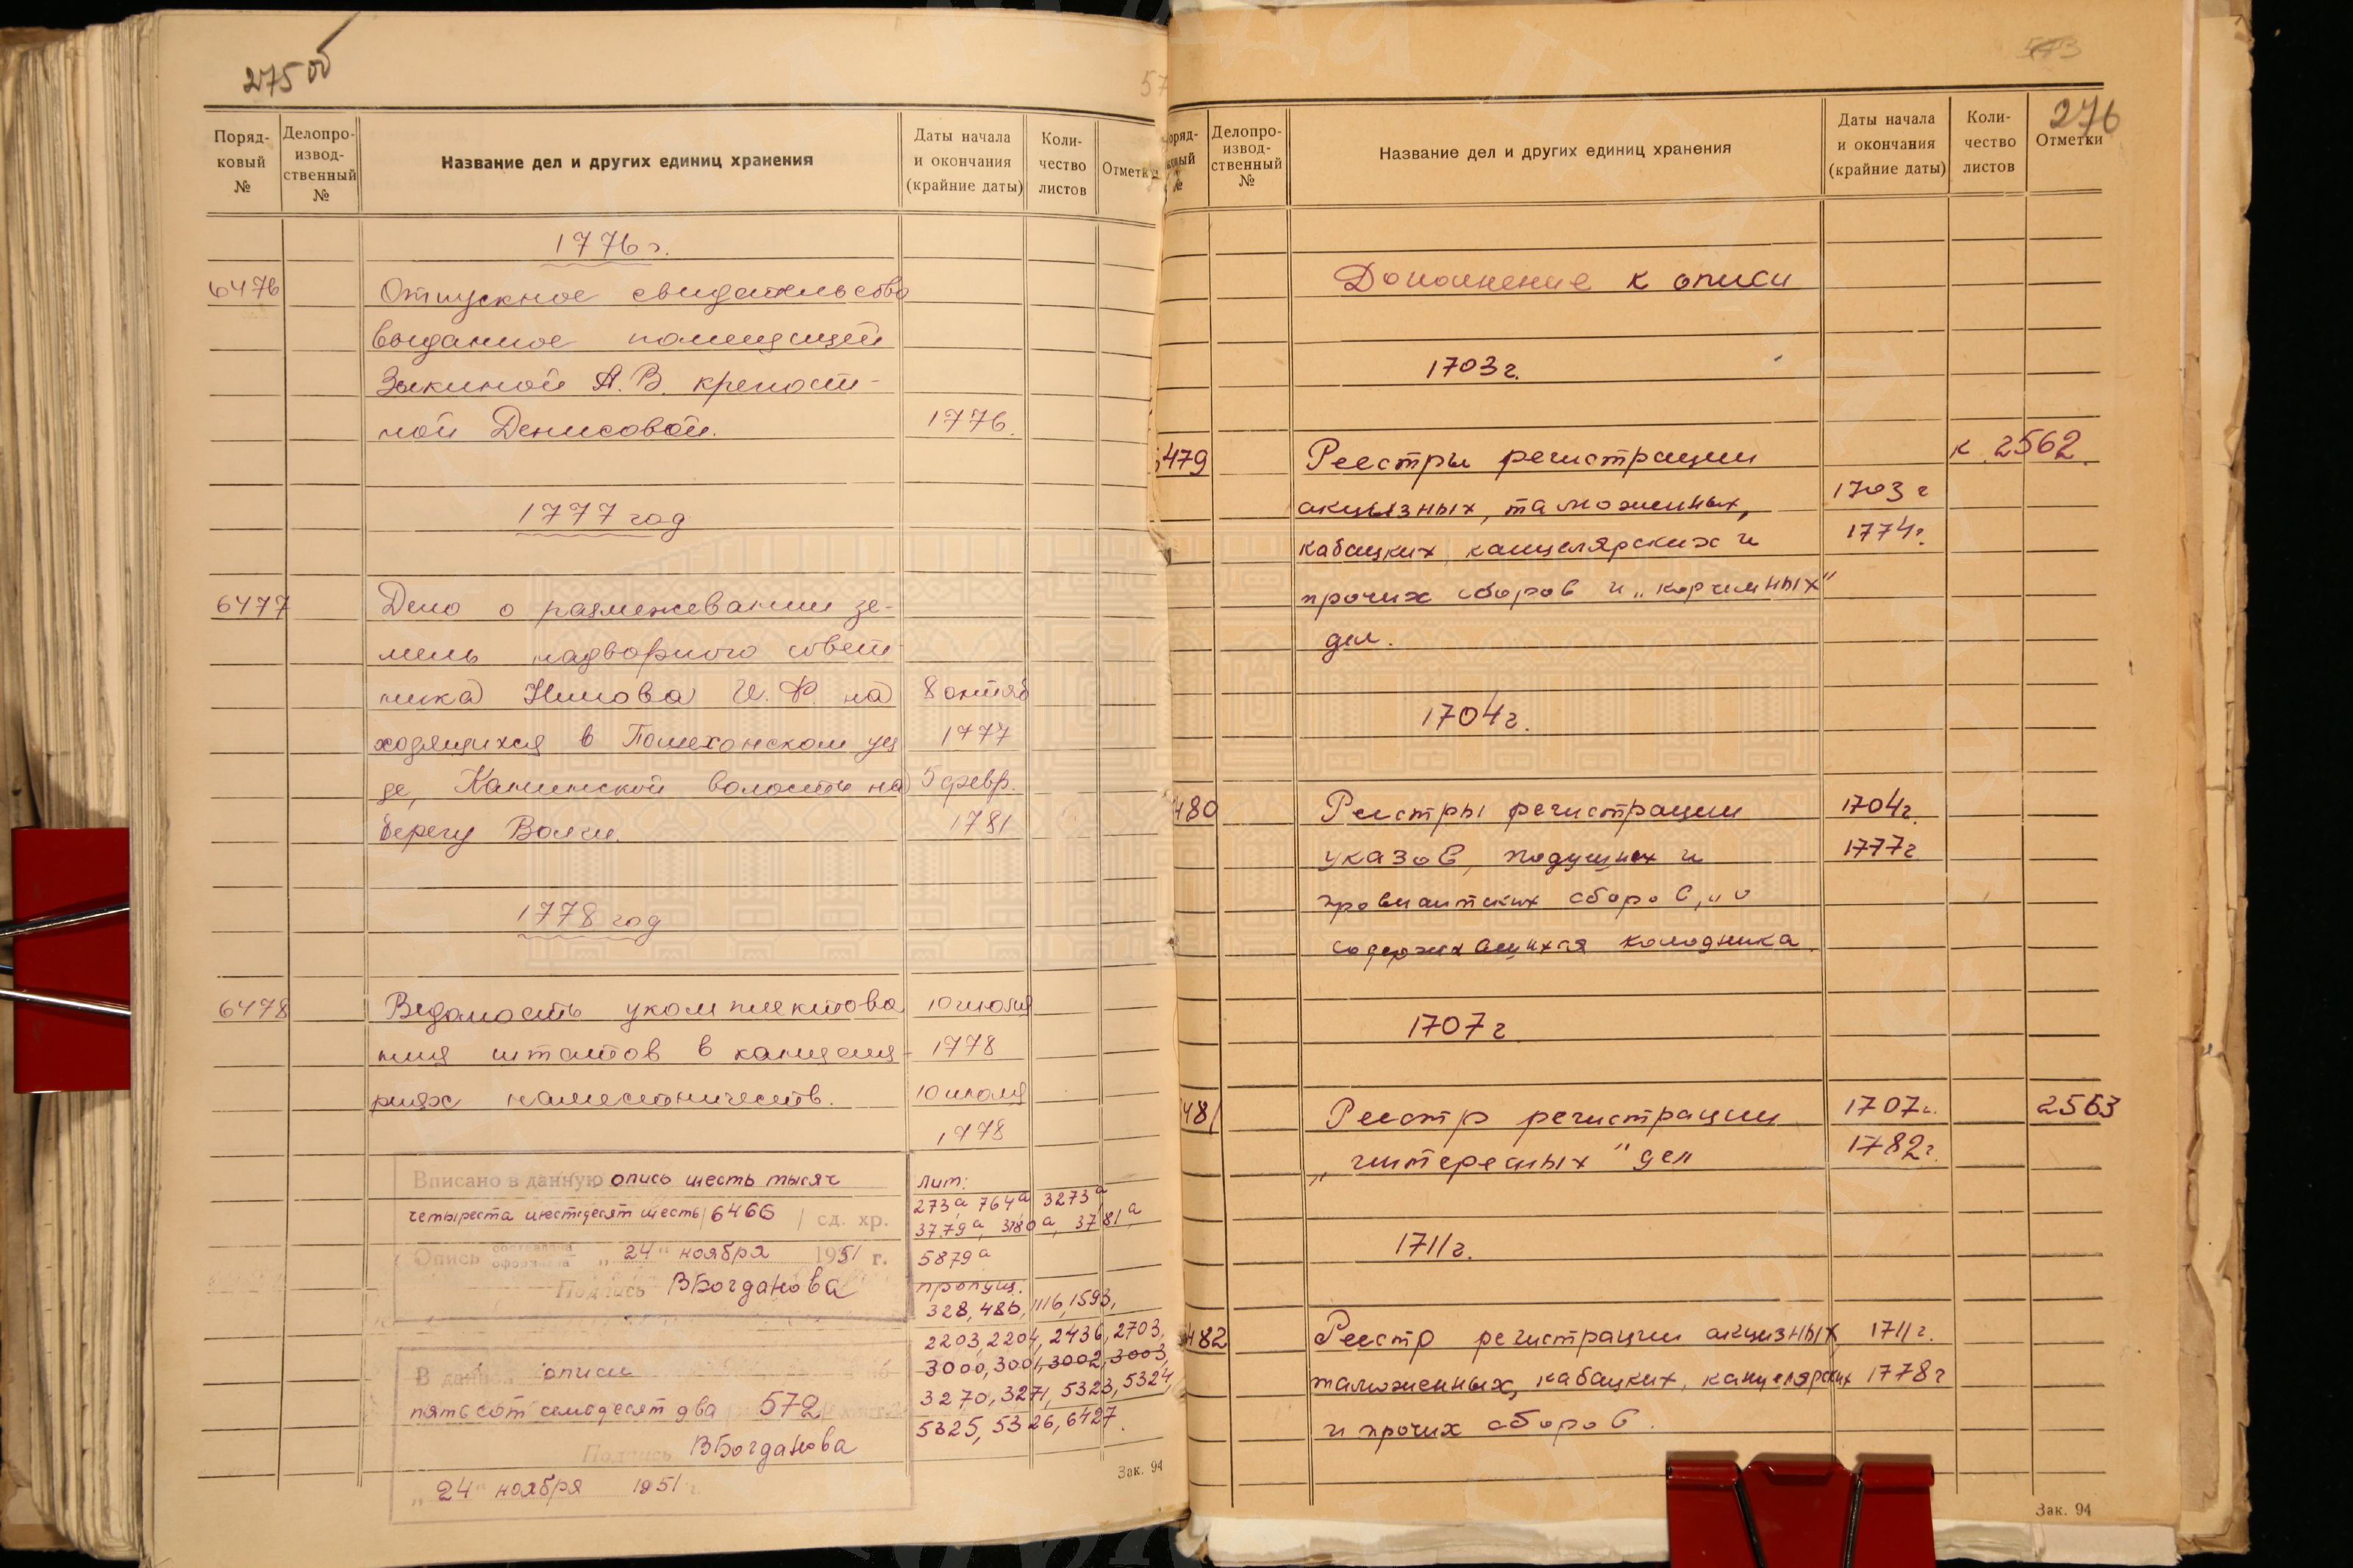 275 об
Поряд-
ковый
№
Делопро-
извод-
ственный
№
Название дел и других единиц хранения
Даты начала
и окончания
(крайние даты)
Коли-
чество
листов
Отметки
1776 г.
6476 Отпускное свидетельство
выданное помещицей
Зыкиной А. В. крепост-
ной Денисовой. 1776.
1777 год
6477 Дело о размежевании зе-
мель надворного совет-
ника И. Ф. на 8 октяб
ходящихся в Пошехонском уез 1777
де, волости на 5 февр.
берегу Волги. 1781
1778 год
6478 Ведомость укомплектова 10 июля
ния штатов в канцеля- 1778
риях наместничеств. 10 июля
1778
Вписано в данную опись шесть тысяч
четыреста шестьдесят шесть /6466/ ед. хр.
Опись составлена
оформлена „24“ ноября 1951 г.
Подпись ВБогданова
В данной описи
пятьсот семьдесят два 572
Подпись ВБогданова
„24“ ноября 1951 г.
лит:
273а, 764а, 3273а
3779а, 3780а, 3781а,
5879а
пропущ.
328, 486, 1116, 1593,
2203, 2204, 2436, 2703,
3000, 3001, 3002, 3003,
3270, 3271, 5323, 5324,
5325, 5326, 6427.
Зак. 94
573
276
оряд-
ковый
№
Делопро-
извод-
ственный
№
Название дел и других единиц хранения
Даты начала
и окончания
(крайние даты)
Коли-
чество
листов
Отметки
Дополнение к описи
1703 г.
479 Реестры регистрации к. 2562.
акцызных, таможенных, 1703 г
кабацких, канцелярских и 1774 г.
прочих сборов и „корчемных“
дел.
1704 г.
480 Реестры регистрации 1704 г.
указов, подушных и 1777 г
провиантских сборов, и о
содержащихся колодника.
1707 г.
481 Реестр регистрации 1707 г. 2563
„интересных“ дел 1782 г.
1711 г.
482 Реестр регистрации акцизных, 1711 г.
таможенных, кабацких, канцелярских 1778 г
и прочих сборов.
Зак. 94